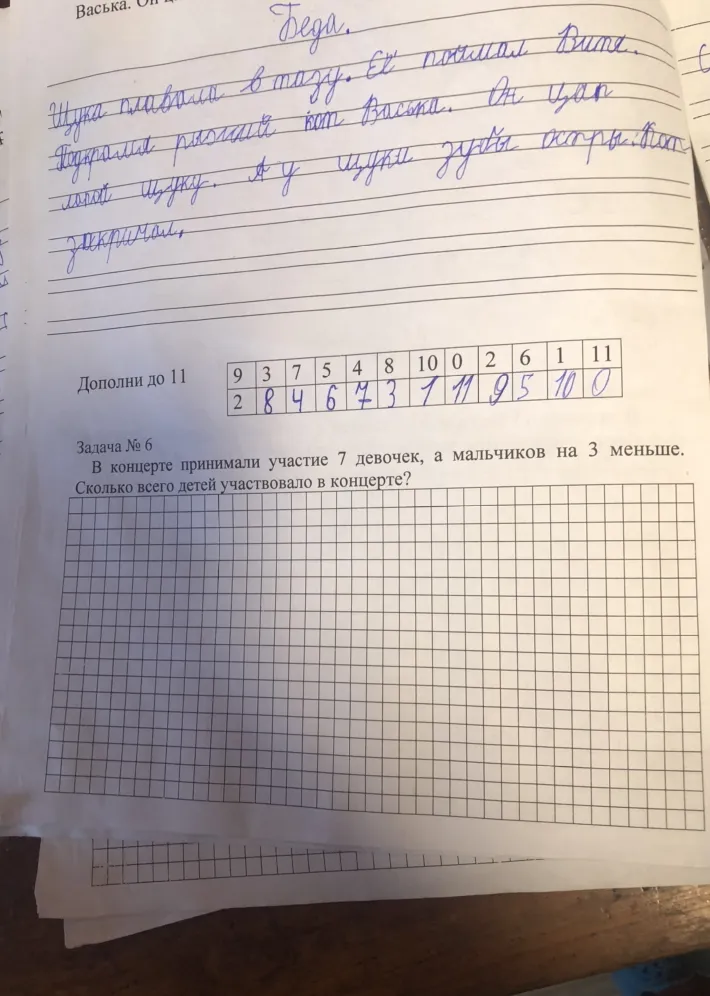 Васька. Он ц
Беда.
Щука плавала в тазу. Её поймал Витя.
Подкрался рыжий кот Васька. Он цап
лапой щуку. А у щуки зубы остры. Кот
закричал.
Дополни до 11
9 3 7 5 4 8 10 0 2 6 1 11
2 8 4 6 7 3 1 11 9 5 10 0
Задача № 6
В концерте принимали участие 7 девочек, а мальчиков на 3 меньше.
Сколько всего детей участвовало в концерте?